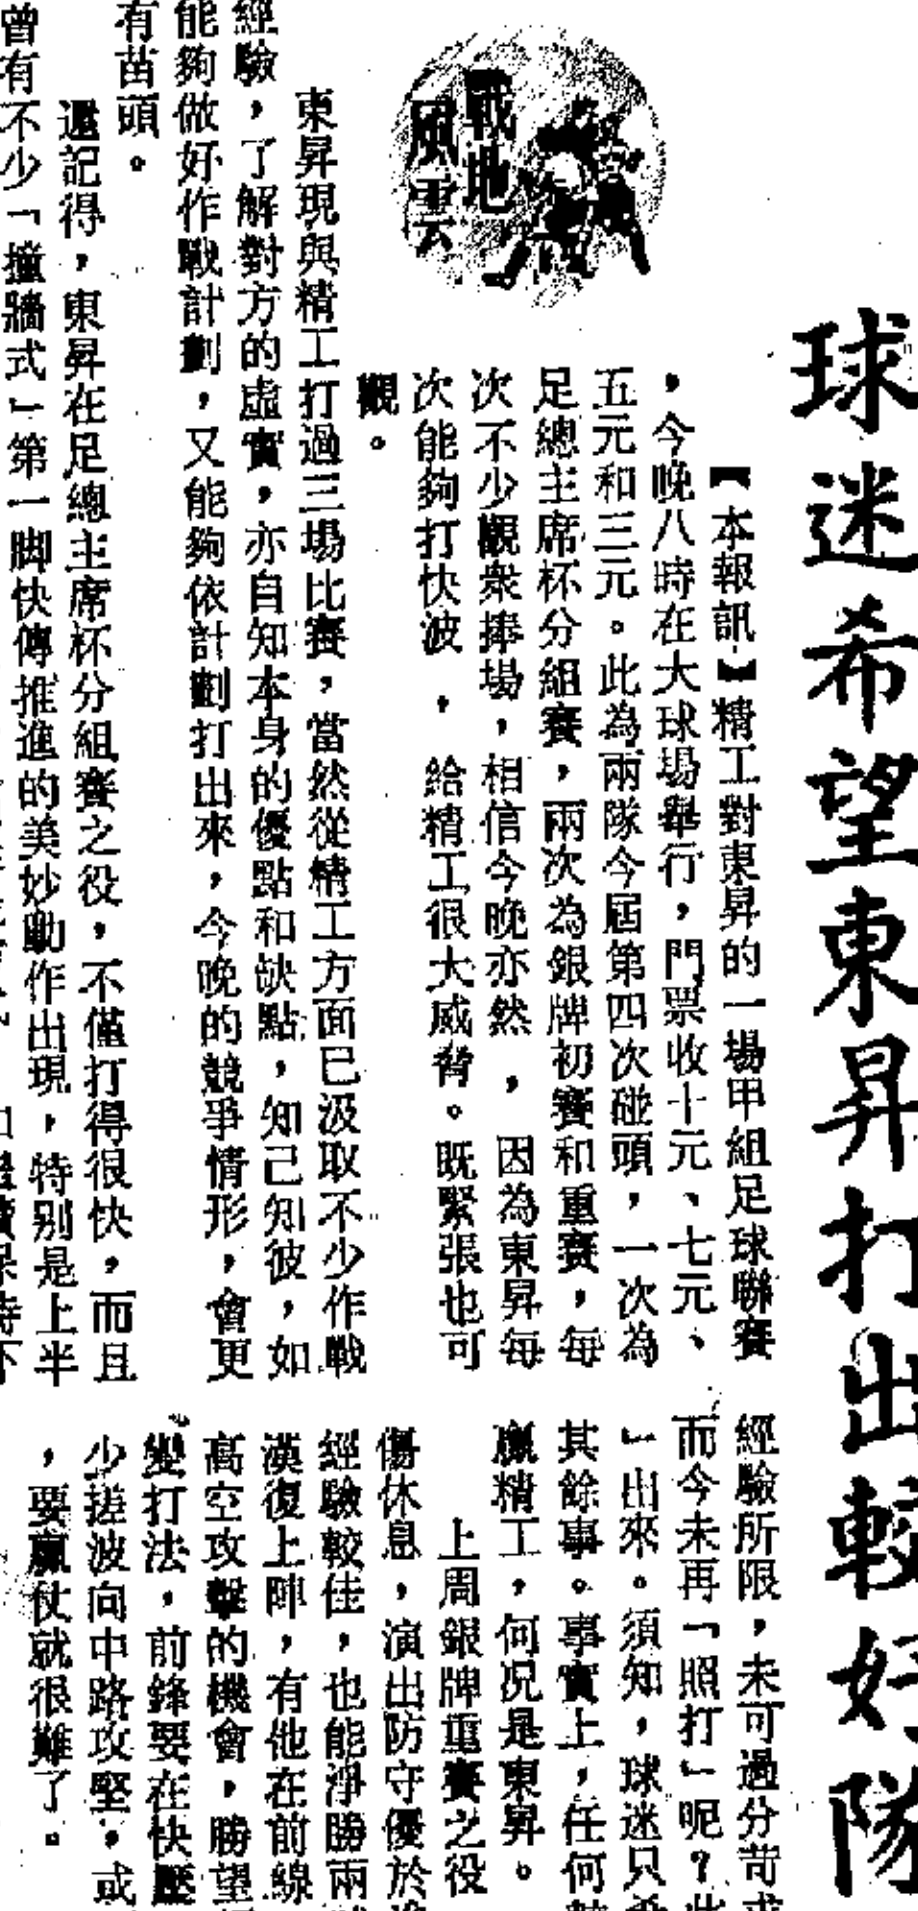 球迷希望東昇打出較好隊
戰地
風雲
【本報訊】精工對東昇的一場甲組足球聯賽
，今晚八時在大球場舉行，門票收十元、七元、
五元和三元。此為兩隊今屆第四次碰頭，一次為
足總主席杯分組賽，兩次為銀牌初賽和重賽，每
次不少觀衆捧場，相信今晚亦然，因為東昇每
次能夠打快波，給精工很大威脅。既緊張也可
觀。
東昇現與精工打過三場比賽，當然從精工方面已汲取不少作戰
經驗，了解對方的虛實，亦自知本身的優點和缺點，知己知彼，如
能夠做好作戰計劃，又能夠依計劃打出來，今晚的競爭情形，會更
有苗頭。
還記得，東昇在足總主席杯分組賽之役，不僅打得很快，而且
曾有不少「撞牆式」第一脚快傳推進的美妙動作出現，特别是上半
經驗所限，未可過分苛
而今未再「照打」呢？
」出來。須知，球迷只
其餘事。事實上，任何
贏精工，何況是東昇。
上周銀牌重賽之役
傷休息，演出防守優於
經驗較佳，也能淨勝兩
漢復上陣，有他在前線
高空攻擊的機會，勝望
變打法，前鋒要在快壓
少搓波向中路攻堅，或
，要贏仗就很難了。